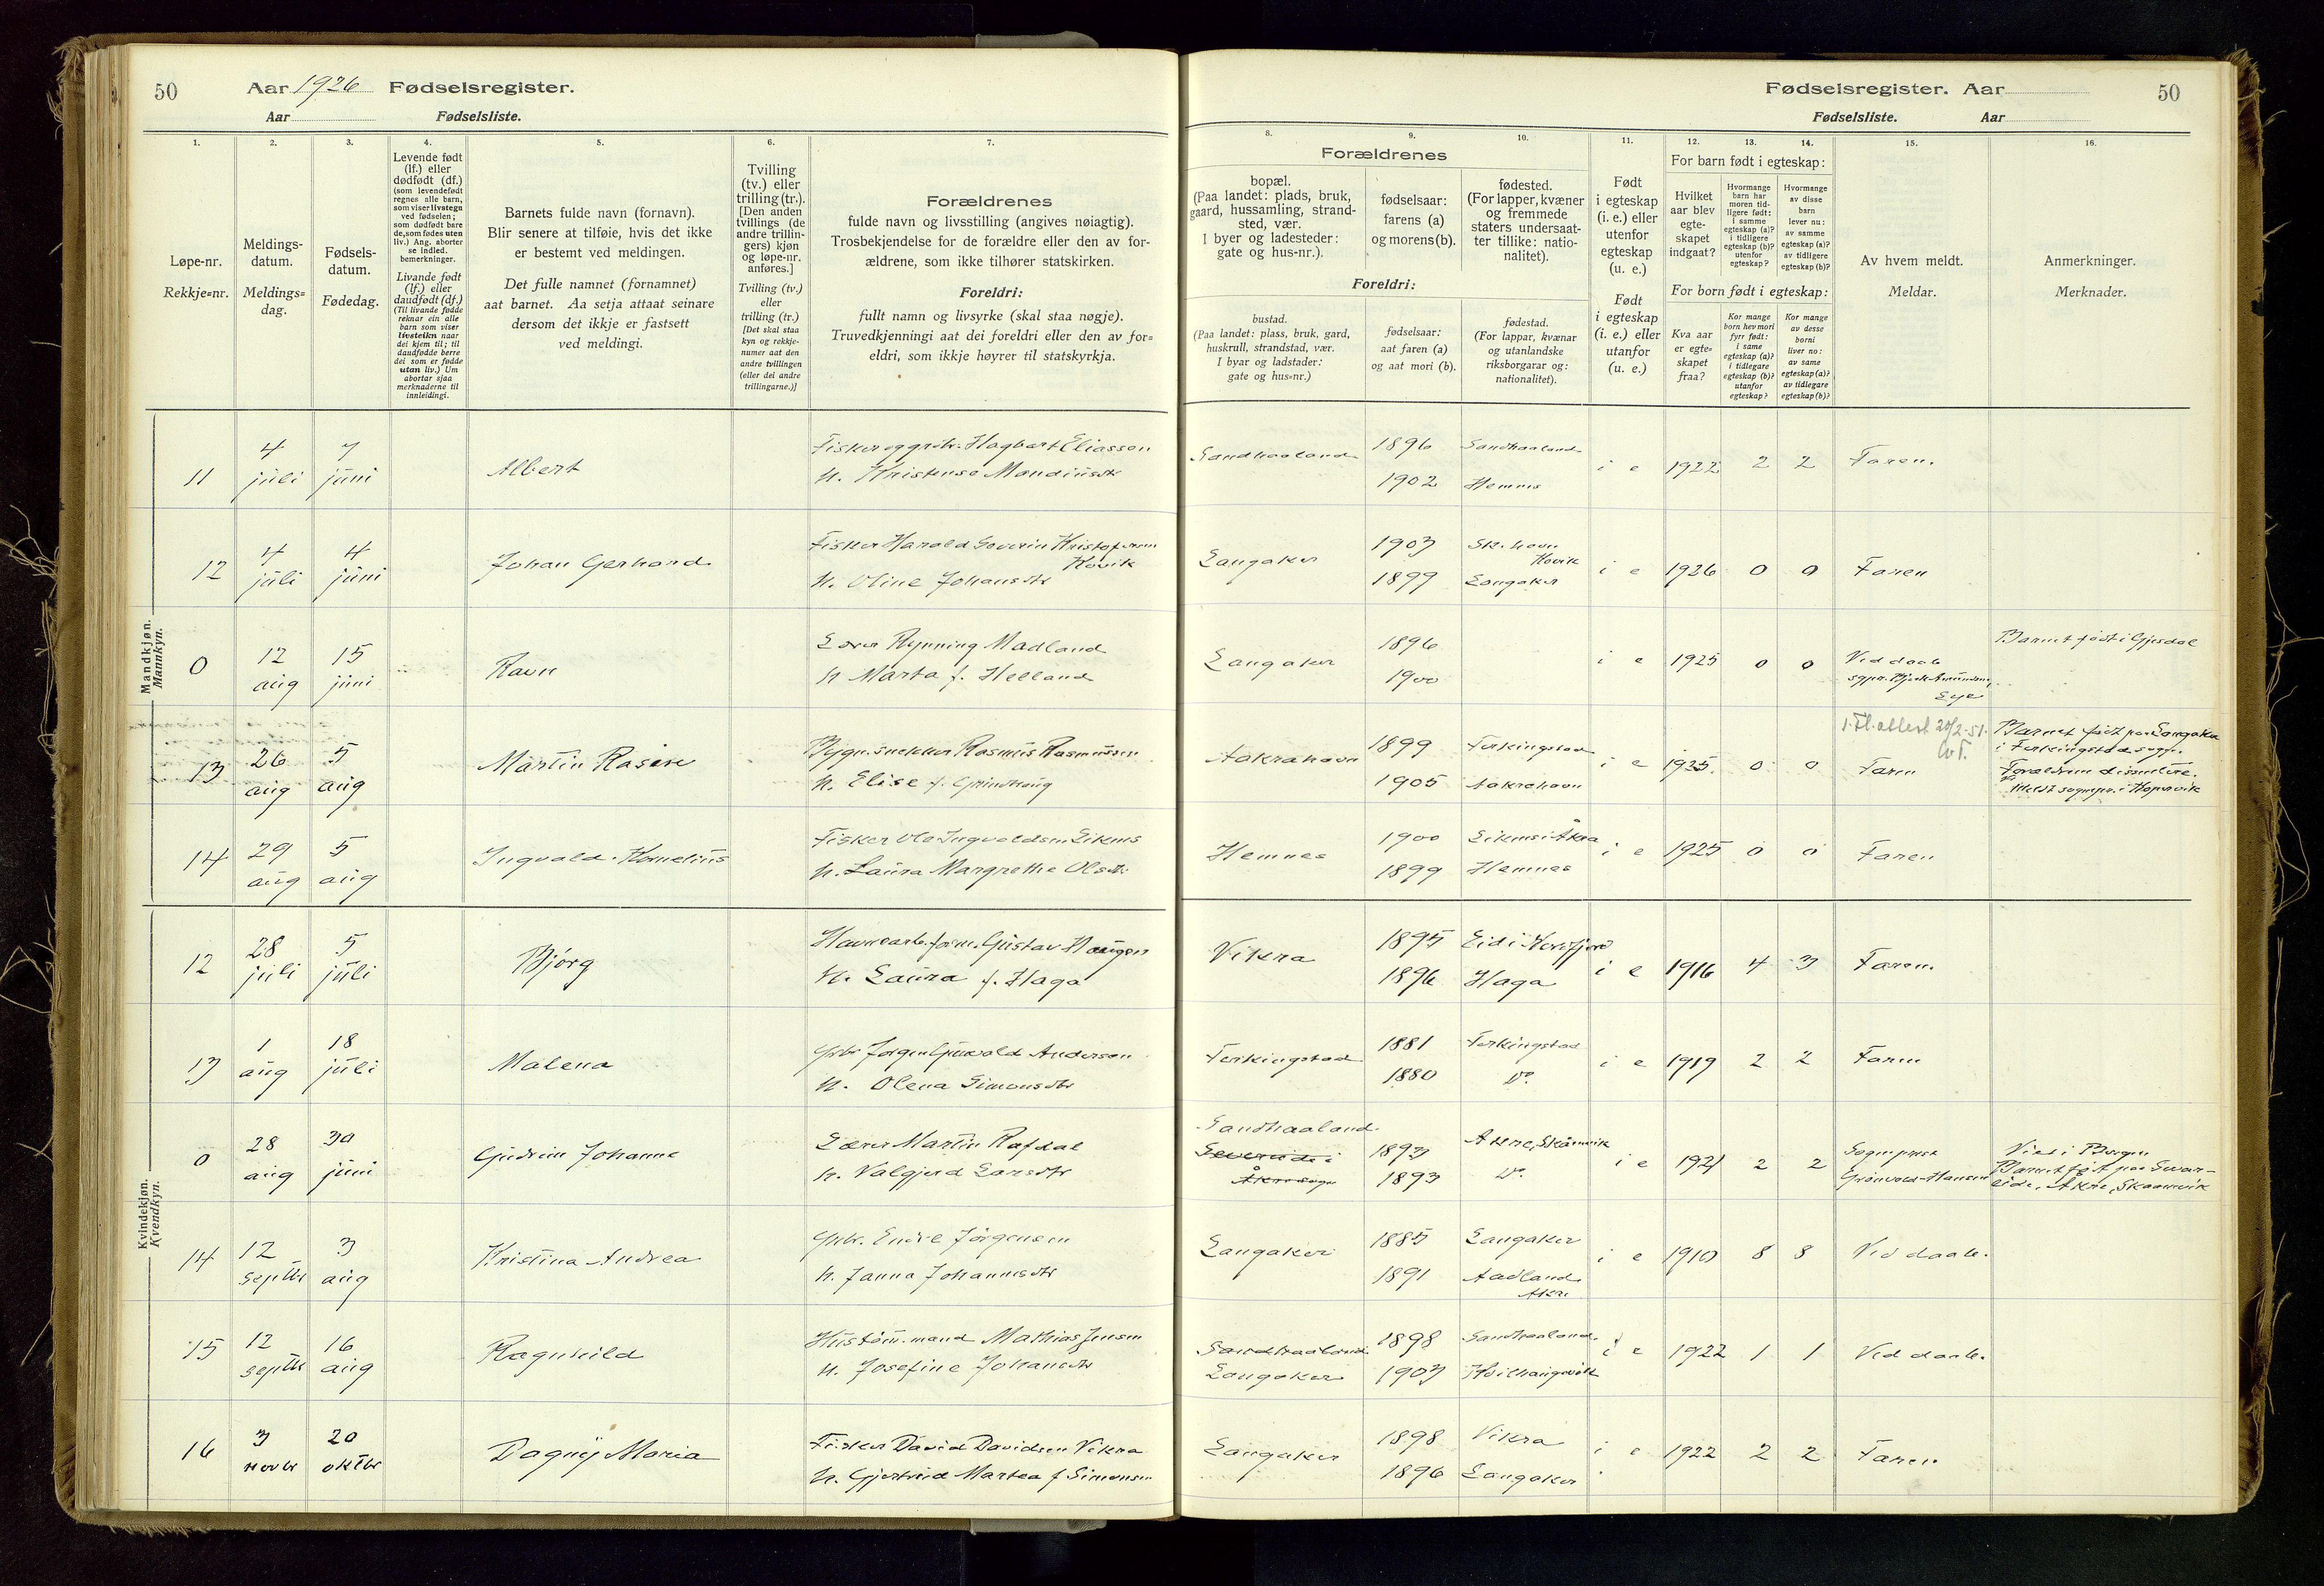 50
Aar 1926 Fødselsregister.
Aar Fødselsliste.
1.
2.
3.
4.
5.
6.
7.
Løpe-nr.
Rekkje=nr.
Meldings-
datum.
Meldings=
dag.
Fødsels-
datum.
Fødedag.
Levende født
(lf.) eller
dødfødt (df.)
(som levendefødt
regnes alle barn,
som viser livstegn
ved fødselen;
som dødfødt bare
de, som fødes uten
liv.) Ang. aborter
se indled.
bemerkninger.
Livande født
(lf.) eller
daudfødt (df.)
(Til livande fødde
reknar ein alle
barn som viser
livsteikn naar
dei kjem til; til
daudfødde berre
dei som er fødde
utan liv.) Um
abortar sjaa
merknaderne til
innleidingi.
Barnets fulde navn (fornavn).
Blir senere at tilføie, hvis det ikke
er bestemt ved meldingen.
Det fulle namnet (fornamnet)
aat barnet. Aa setja attaat seinare
dersom det ikkje er fastsett
ved meldingi.
Tvilling
(tv.) eller
trilling (tr.).
[Den anden
tvillings (de
andre trillin-
gers) kjøn
og løpe-nr.
anføres.]
Tvilling (tv.)
eller
trilling (tr.)
[Det skal staa
kyn og rekkje-
numer aat den
andre tvillingen
(eller dei andre
trillingarne.)]
Forældrenes
fulde navn og livsstilling (angives nøiagtig).
Trosbekjendelse for de forældre eller den av for-
ældrene, som ikke tilhører statskirken.
Foreldri:
fullt namn og livsyrke (skal staa nøgje).
Truvedkjenningi aat dei foreldri eller den av for=
eldri, som ikkje høyrer til statskyrkja.
Mandkjøn.
Mannkyn.
11 4 juli 7 juni Albert Fisker og grbr. Hagbart Eliassen
h. Kristense Mandiusdtr
12 4 juli 4 juni Johan Gerhard Fisker Harald Severin Kristofersen
Hovik
h. Oline Johansdtr
0 12 aug 15 juni Ravn Lærer Rynning Madland
h Marta f. Helland
13 26 aug 5 aug Martin Rasmus Rasmussen
h. Elise f. Grindhaug
14 29 aug 5 aug Ingvald Kornelius Fisker Ole Ingvaldsen Liknes
h. Laura Margrethe Olsdtr.
Kvindekjøn.
Kvendkyn.
12 28 juli 5 juli Bjørg Gustav Haugen
h. Laura f. Haga
13 1 aug 18 juli Malena Grbr Jørgen Andersen
h. Olena Simonsdtr
0 28 aug 30 juni Gudrun Johanne Lærer Martin Rafdal
h. Valgjerd Larsdtr
14 12 septbr 3 aug Kristina Andrea Grbr. Endre Jørgensen
h. Janna Johannesdtr
15 12 septbr 16 aug Ragnhild Hustøm.mand Mathias Jensen
h. Josefine Johansdtr
16 3 novbr 20 oktbr Dagny Maria Fisker David Davidsen Vikra
h. Gjertrud Martea f Simonsen
Fødselsregister. Aar
50
Fødselsliste. Aar
8.
9.
10.
11.
12.
13.
14.
15.
16.
Forældrenes
bopæl.
(Paa landet: plads, bruk,
gaard, hussamling, strand-
sted, vær.
I byer og ladesteder:
gate og hus-nr.).
fødselsaar:
farens (a)
og morens (b).
fødested.
(For lapper, kvæner
og fremmede
staters undersaat-
ter tillike: natio-
nalitet).
Foreldri:
bustad.
(Paa landet: plass, bruk, gard,
huskrull, strandstad, vær.
I byar og ladstader:
gate og hus=nr.)
fødselsaar:
aat faren (a)
og aat mori (b).
fødestad.
(For lappar, kvænar
og utanlandske
riksborgarar og:
nationalitet).
Født
i egteskap
(i. e.) eller
utenfor
egteskap
(u. e.)
Født
i egteskap
(i. e.) eller
utanfor
(u. e.)
For barn født i egteskap:
Hvilket
aar blev
egte-
skapet
indgaat?
Hvormange
barn har
moren tid-
ligere født:
i samme
egteskap (a)?
i tidligere
egteskap (b)?
utenfor
egteskap?
Hvormange
av disse
barn
lever nu:
av samme
egteskap (a)?
av tidligere
egteskap (b)?
For born født i egteskap:
Kva aar
er egte-
skapet
fraa?
Kor mange
born hev mori
fyrr født:
i same
egteskap (a)?
i tidlegare
egteskap (b)?
utanfor
egteskap?
Kor mange
av desse
borni
liver no:
av same
egteskap (a)?
av tidlegare
egteskap (b)?
Av hvem meldt.
Meldar.
Anmerkninger.
Merknader.
Sandhaaland 1896 Sandhaaland
1902 Hemnes
i e 1922 2 2 Faren.
Langaker 1903 Sk.havn
Hovik
1899 Langaker
i e 1926 0 0 Faren
Langaker 1896
1900
i e 1925 0 0 Ved daab
Barnet født i Gjesdal
Aakrahavn 1899 Ferkingstad
1905 Aakrahavn
i e 1925. 0 0 Faren
1. Fl. attest 20/2-51.
Barnet født paa Langaker
i Ferkingstad sogn.
Forældrene dissentere.
Meldt sognepr. i Kopervik
Hemnes 1900 Liknes i Åkra
1899 Hemnes
i e 1925 0 0 Faren
Vikra 1895 Eid i Nordfjord
1896 Haga
i e 1916 4 3 Faren.
Ferkingstad 1881 Ferkingstad
1880 Do.
i e 1919 2 2 Faren
Sandhaaland
1893 Akre, Skånevik
1893 Do.
i e 1921 2 2 Sogneprest
Grønvold-Hansen
Viet i Bergen
Barnet født paa Svar-
eide, Akre, Skaanevik
Langaker 1885 Langaker
1891 Aadland
Akre
i e 1910 8 8 Ved daab.
Sandhaaland 1898 Sandhaaland
Langaker 1903
i e 1922 1 1 Ved daab.
Langaker 1898 Vikra
1896 Langaker
i e 1922 2 2 Faren